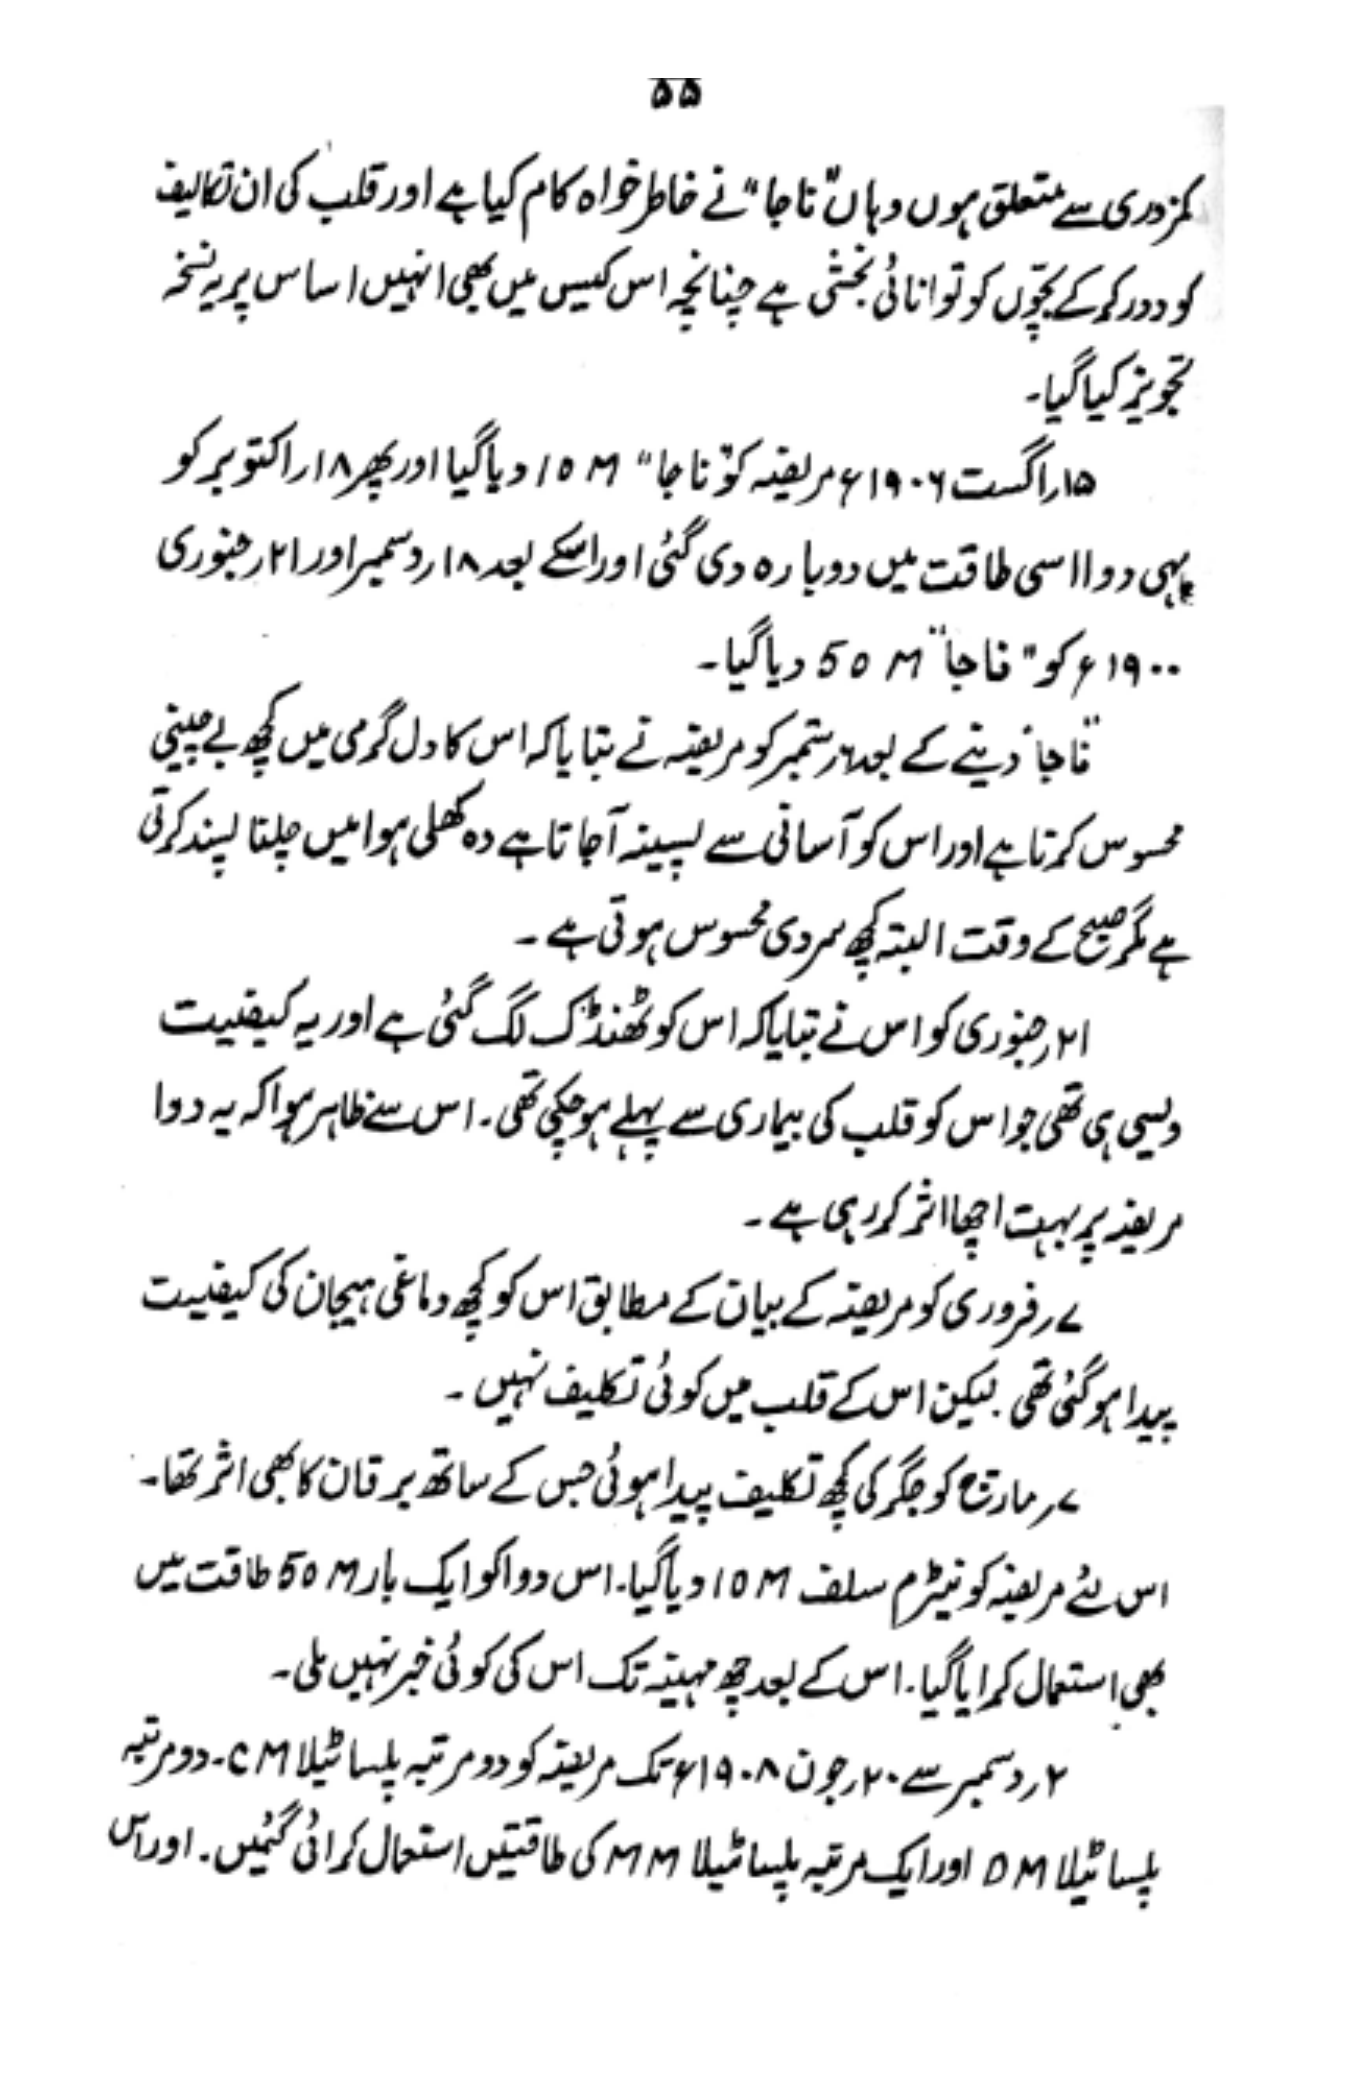 ۵۵
کمزوری سے متعلق ہوں وہاں "ناجا" نے خاطر خواہ کام کیا ہے اور قلب کی ان تکالیف
کو دور کر کے بچّوں کو توانائی بخشی ہے چنانچہ اس کیس میں بھی انہیں اساس پر یہ نسخہ
تجویز کیا گیا۔
۱۵؍اگست ۱۹۰۶ء مریضہ کو "ناجا" 10 M دیا گیا اور پھر ۱۸؍اکتوبر کو
یہی دوا اسی طاقت میں دوبارہ دی گئی اور اسکے بعد ۱۸؍دسمبر اور ۲۱؍جنوری
۱۹۰۰ء کو "ناجا" 50 M دیا گیا۔
"ناجا" دینے کے بعد ۶؍ستمبر کو مریضہ نے بتایا کہ اس کا دل گرمی میں کچھ بے چینی
محسوس کرتا ہے اور اس کو آسانی سے پسینہ آجاتا ہے وہ کھلی ہوا میں چلنا پسند کرتی
ہے مگر صبح کے وقت البتہ کچھ سردی محسوس ہوتی ہے۔
۲۱؍جنوری کو اس نے بتلایا کہ اس کو ٹھنڈک لگ گئی ہے اور یہ کیفیت
ویسی ہی تھی جو اس کو قلب کی بیماری سے پہلے ہو چکی تھی۔ اس سے ظاہر ہوا کہ یہ دوا
مریضہ پر بہت اچھا اثر کر رہی ہے۔
۷؍فروری کو مریضہ کے بیان کے مطابق اس کو کچھ دماغی ہیجان کی کیفیت
پیدا ہو گئی تھی۔ لیکن اس کے قلب میں کوئی تکلیف نہیں۔
۷؍مارچ کو جگر کی کچھ تکلیف پیدا ہوئی جس کے ساتھ یرقان کا بھی اثر تھا۔
اس لئے مریضہ کو نیٹرم سلف 10 M دیا گیا۔ اس دوا کو ایک بار 50 M طاقت میں
بھی استعمال کرایا گیا۔ اس کے بعد چھ مہینہ تک اس کی کوئی خبر نہیں ملی۔
۲؍دسمبر سے ۲۰؍جون ۱۹۰۸ء تک مریضہ کو دو مرتبہ پلساٹیلا CM۔ دو مرتبہ
پلساٹیلا DM اور ایک مرتبہ پلساٹیلا MM کی طاقتیں استعمال کرائی گئیں۔ اور اس